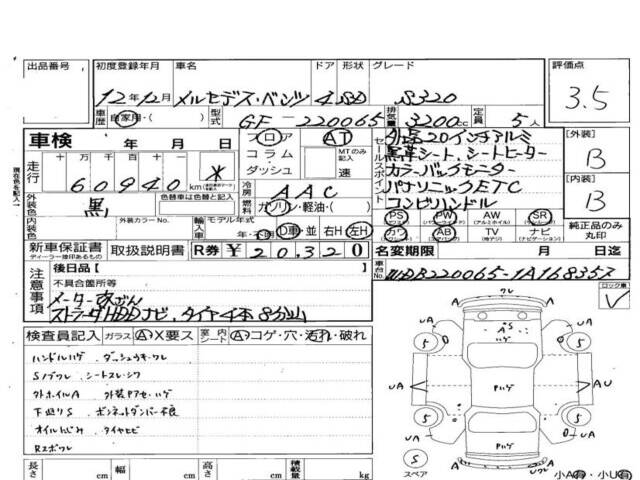 出品番号 初度登録年月 車名 ドア 形状 グレード 評価点
12年12月 メルセデス・ベンツ 4 SD S320 3.5
車歴 自家用・( ) 型式 GF-220065 排気量 3200cc 定員 5人
車検 年 月 日 フロア AT セールスポイント 外長20インチアルミ [外装]
コラム MTのみ記入 黒革シート、シートヒーター B
走行 十万千百十 60940km * ダッシュ 速 カラーバックモニター
冷房 AAC パナソニックETC [内装]
外装色 黒 色替車は色替と記入 燃料 ガソリン・軽油・( ) コンビハンドル B
外装カラーNo. 輸入車 モデル年式 PS PW AW SR
内装色 年・不明 D車・並 右H・左H カワ AB TV ナビ 純正品のみ丸印
新車保証書 取扱説明書 R券 ¥20,320 名変期限 月 日迄
ディーラー捺印あるもの
車台No. WDB220065-1A168357
注意事項 後日品[ ] ロック車
不具合箇所等
メーター改ざん
ストラーダHDDナビ、タイヤ4本8分山
検査員記入 ガラス A・X要ス 室内 シート A コゲ・穴・汚れ・破れ
ハンドルハゲ、ダッシュウキ・ワレ
Sノブワレ、シートスレ・シワ
外ホイルA 外装Pアセ・ハゲ
下廻りS ボンネットダンパー不良
オイルにじみ タイヤヒビ
Rスポワレ
長さ cm 幅 cm 高さ cm 積載量 kg
ワレ
A S
UA
5 5
Pハゲ
UA AU
5 5
UA UA
Pハゲ
S スペア
小A有・小U有